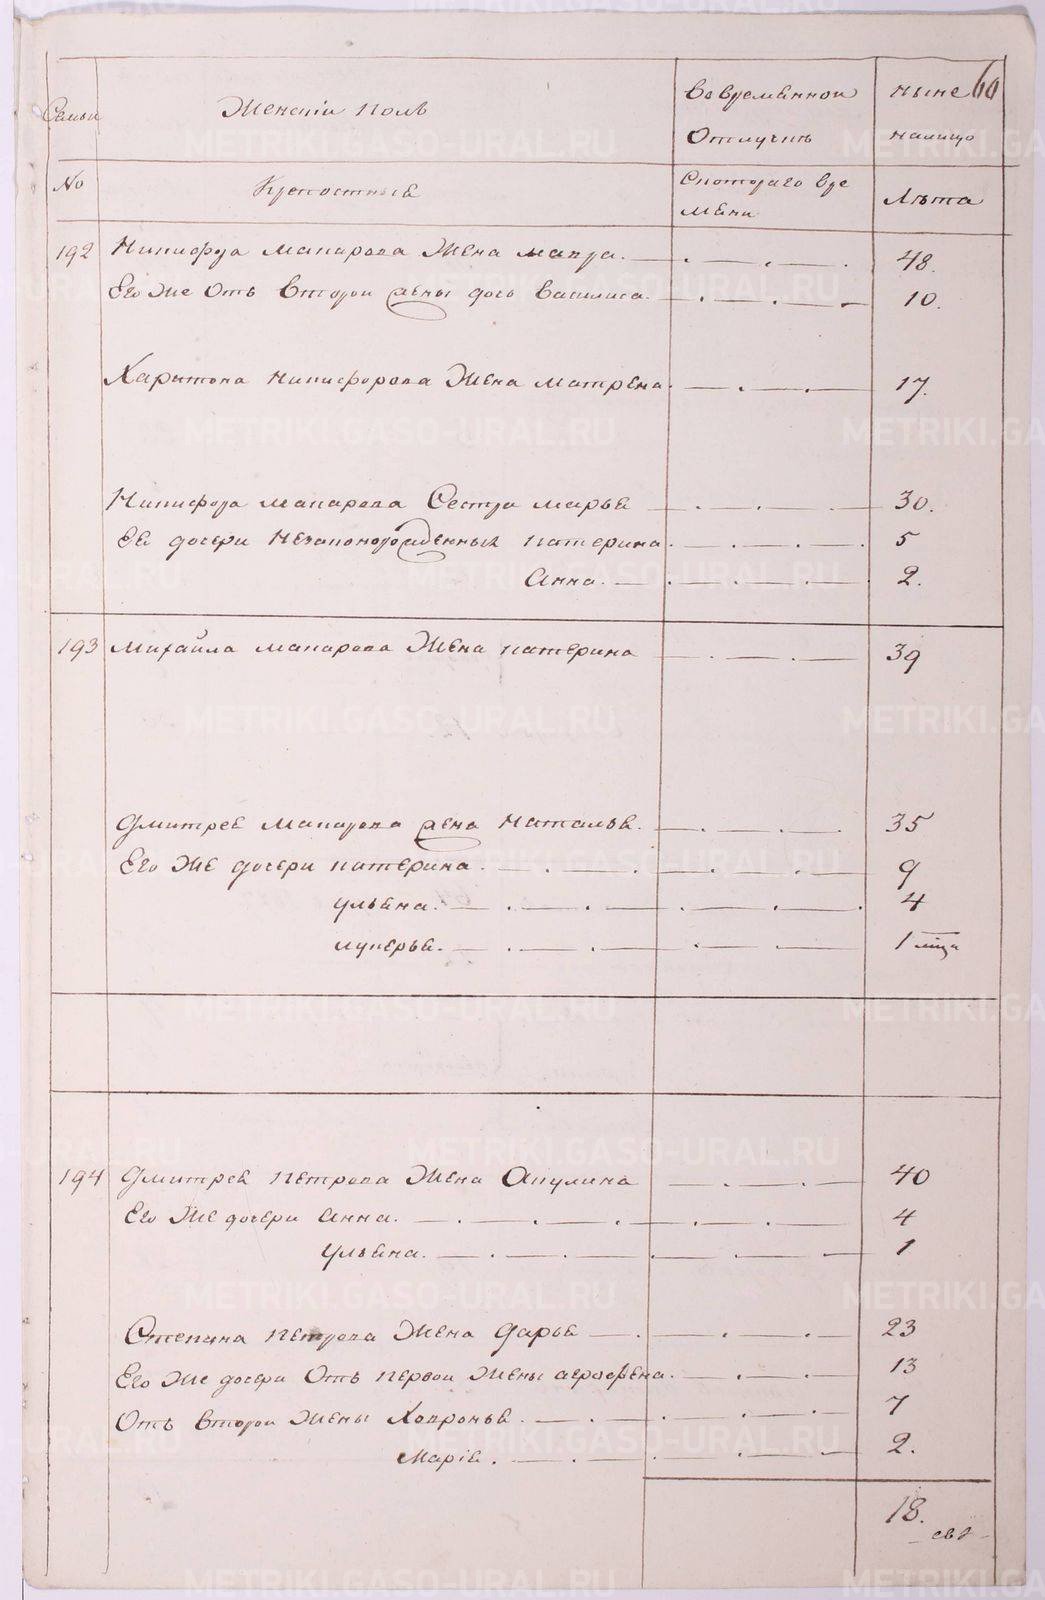 60
Семьи
Женскiй полъ
Во временной
Отлучкѣ
Ныне
налицо
No
Крепостные
Скотораго вре
мени
Лѣта
192 Никифора Макарова Жена мавра. 48.
Его же Отъ Второй жены дочь Василиса. 10.
Харитона Никифорова Жена матрена. 17.
Никифора макарова Сестра марья 30.
Ее дочери Незаконорожденныя катерина. 5
Анна. 2.
193 Михайла макарова Жена катерина 39
Дмитрея Макарова жена Наталья. 35
Его же дочери катерина. 9
ульяна. 4
лукерья. 1 мца
194 Дмитрея петрова Жена Акулина 40
Его же дочери анна. 4
ульяна. 1
Степана петрова Жена дарья 23
Его же дочери Отъ первой Жены аграфена. 13
Отъ второй Жены Хавронья. 7
Марiя. 2.
18.
METRIKI.GASO-URAL.RU